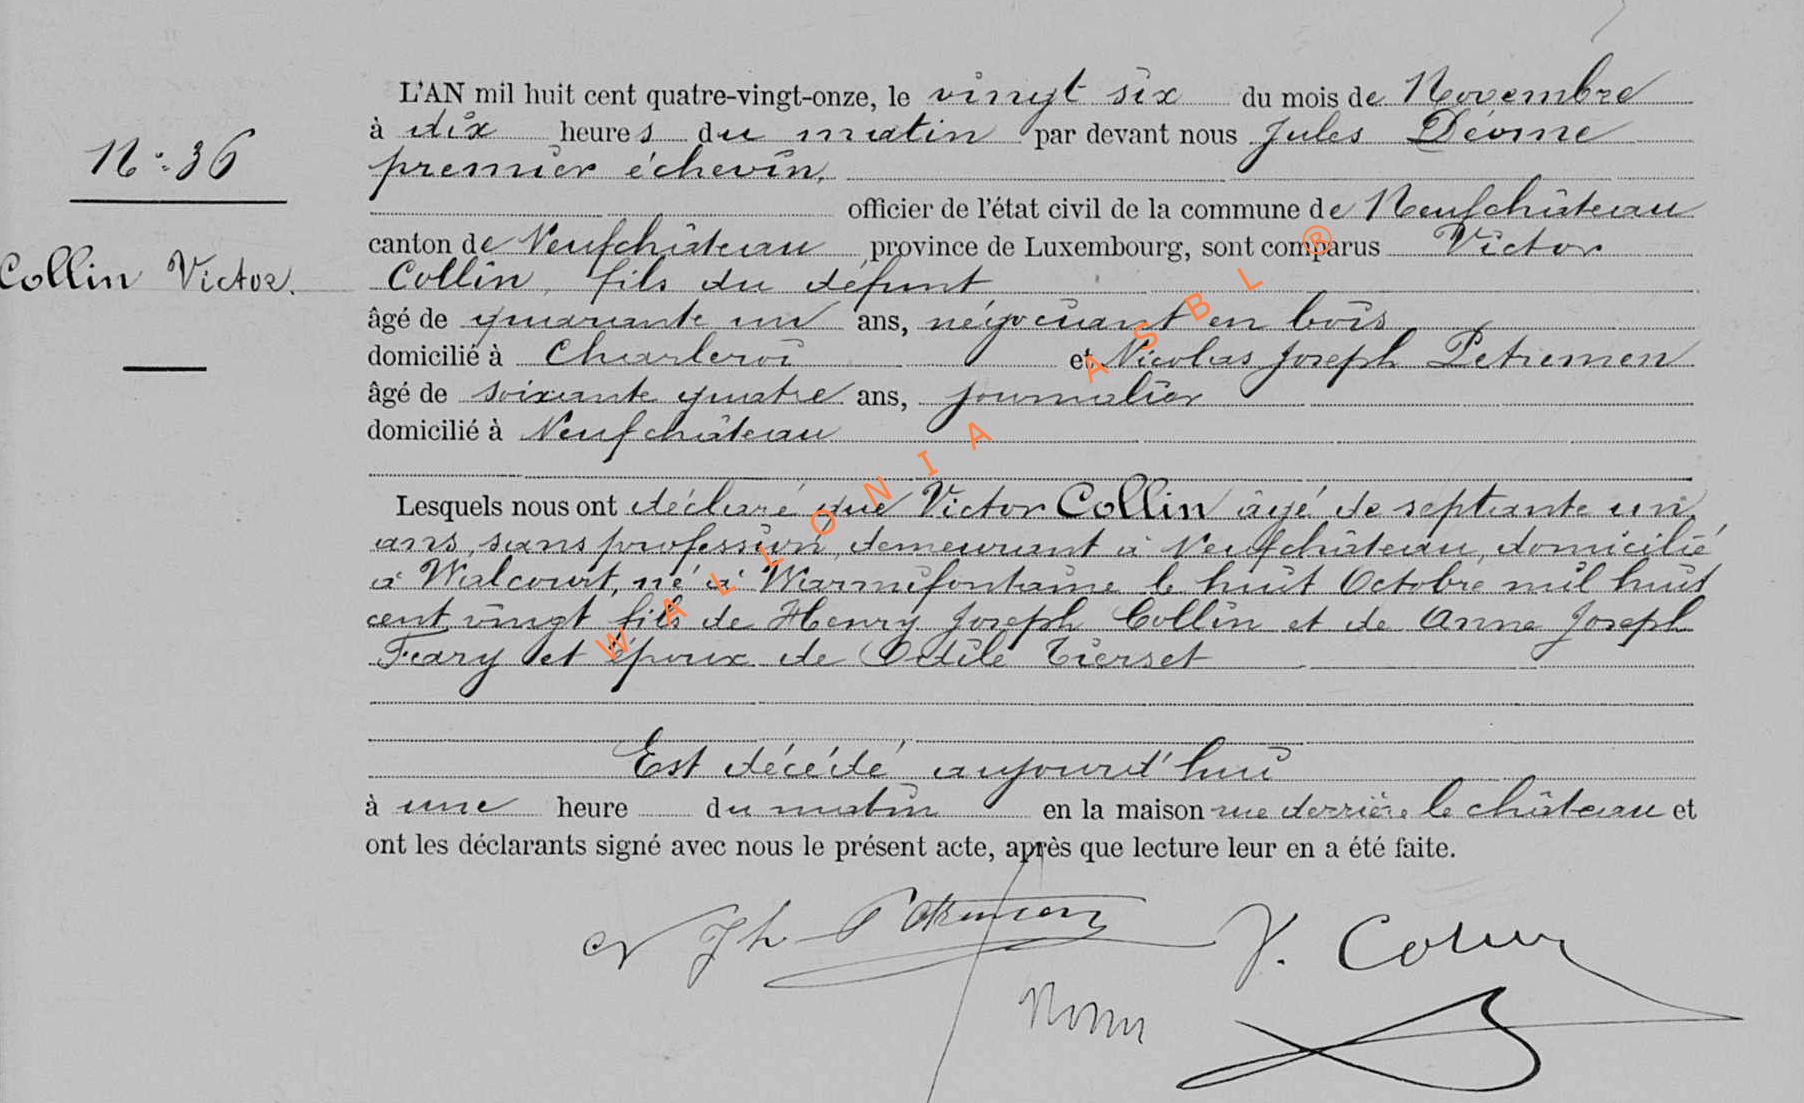 L'AN mil huit cent quatre-vingt-onze, le vingt six du mois de Novembre
à dix heures du matin par devant nous Jules Déome
N° 36
premier échevin,
officier de l'état civil de la commune de Neufchâteau
canton de Neufchâteau province de Luxembourg, sont comparus Victor
Collin Victor.
Collin, fils du défunt
âgé de quarante un ans, négociant en bois
domicilié à Charleroi et Nicolas Joseph Petremen
âgé de soixante quatre ans, journalier
domicilié à Neufchâteau
Lesquels nous ont déclaré que Victor Collin âgé de septante un
ans, sans profession, demeurant à Neufchâteau, domicilié
à Walcourt, né à Warmifontaine le huit Octobre mil huit
cent vingt fils de Henry Joseph Collin et de Anne Joseph
Feary et époux de Odile Tierset
Est décédé aujourd'hui
à une heure du matin en la maison rue derrière le château et
ont les déclarants signé avec nous le présent acte, après que lecture leur en a été faite.
N Jh V. Collin
WALLONIA ASBL ®